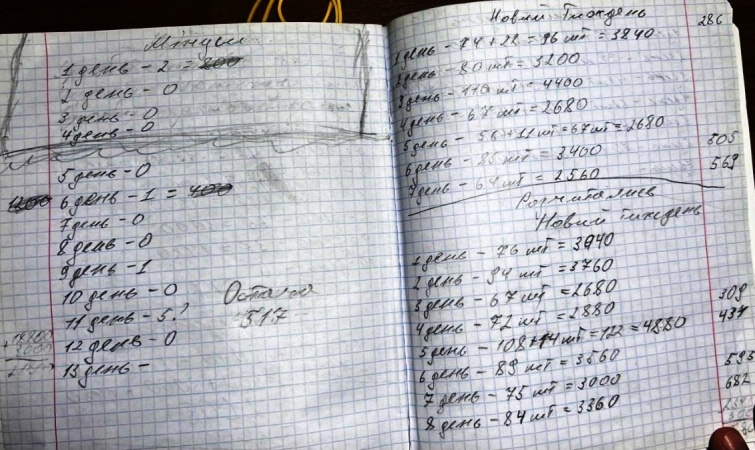 Мінуси
1 день - 2 = 800
2 день - 0
3 день - 0
4 день - 0
5 день - 0
1200 6 день - 1 = 400
7 день - 0
8 день - 0
9 день - 1
10 день - 0
11 день - 5?
12 день - 0
13 день -
517
Новий Тиждень
286
1 день - 74 + 22 = 96 шт = 3840
2 день - 80 шт = 3200
3 день - 110 шт = 4400
4 день - 67 шт = 2680
5 день - 56 + 11 шт = 67 шт = 2680
505
6 день - 85 шт = 3400
569
7 день - 64 шт = 2560
Розчиталися
Новий тиждень
1 день - 76 шт = 3040
2 день - 94 шт = 3760
3 день - 67 шт = 2680
309
4 день - 72 шт = 2880
431
5 день - 108 + 14 шт = 122 = 4880
6 день - 89 шт = 3560
595
7 день - 75 шт = 3000
682
8 день - 84 шт = 3360